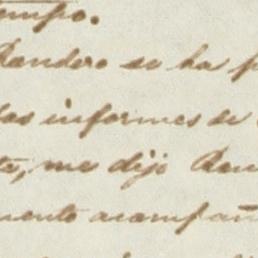 tempo.
Randero se ha p
las informes de
te, me dijo Ran
mento acompañ